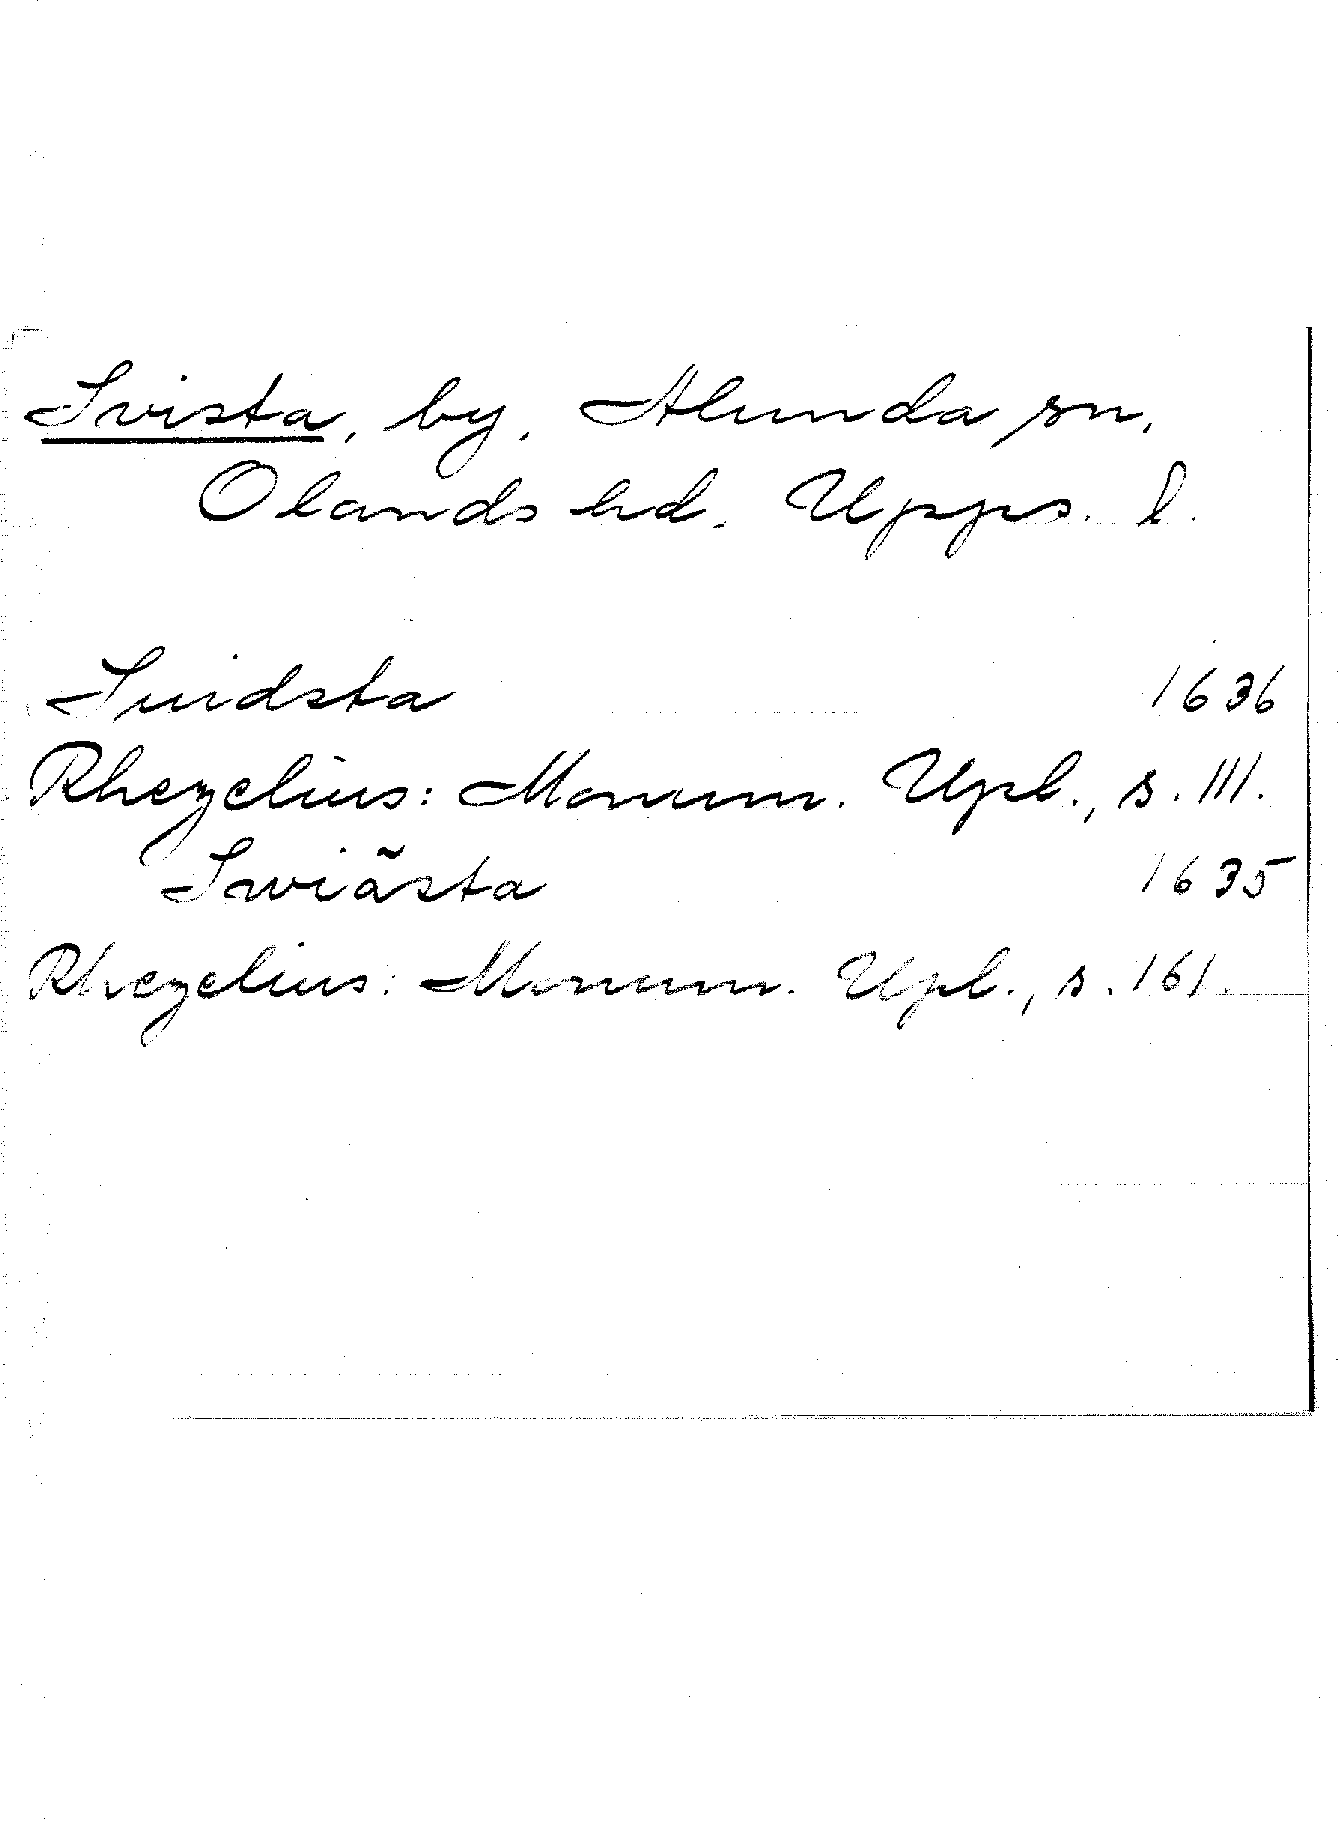 Svista, by, Alunda sn,
Olands hd. Upps. l.
Suidsta 1636
Rhezelius: Monum. Upl., s. 111.
Swiãsta 1635
Rhezelius: Monum. Upl., s. 161.